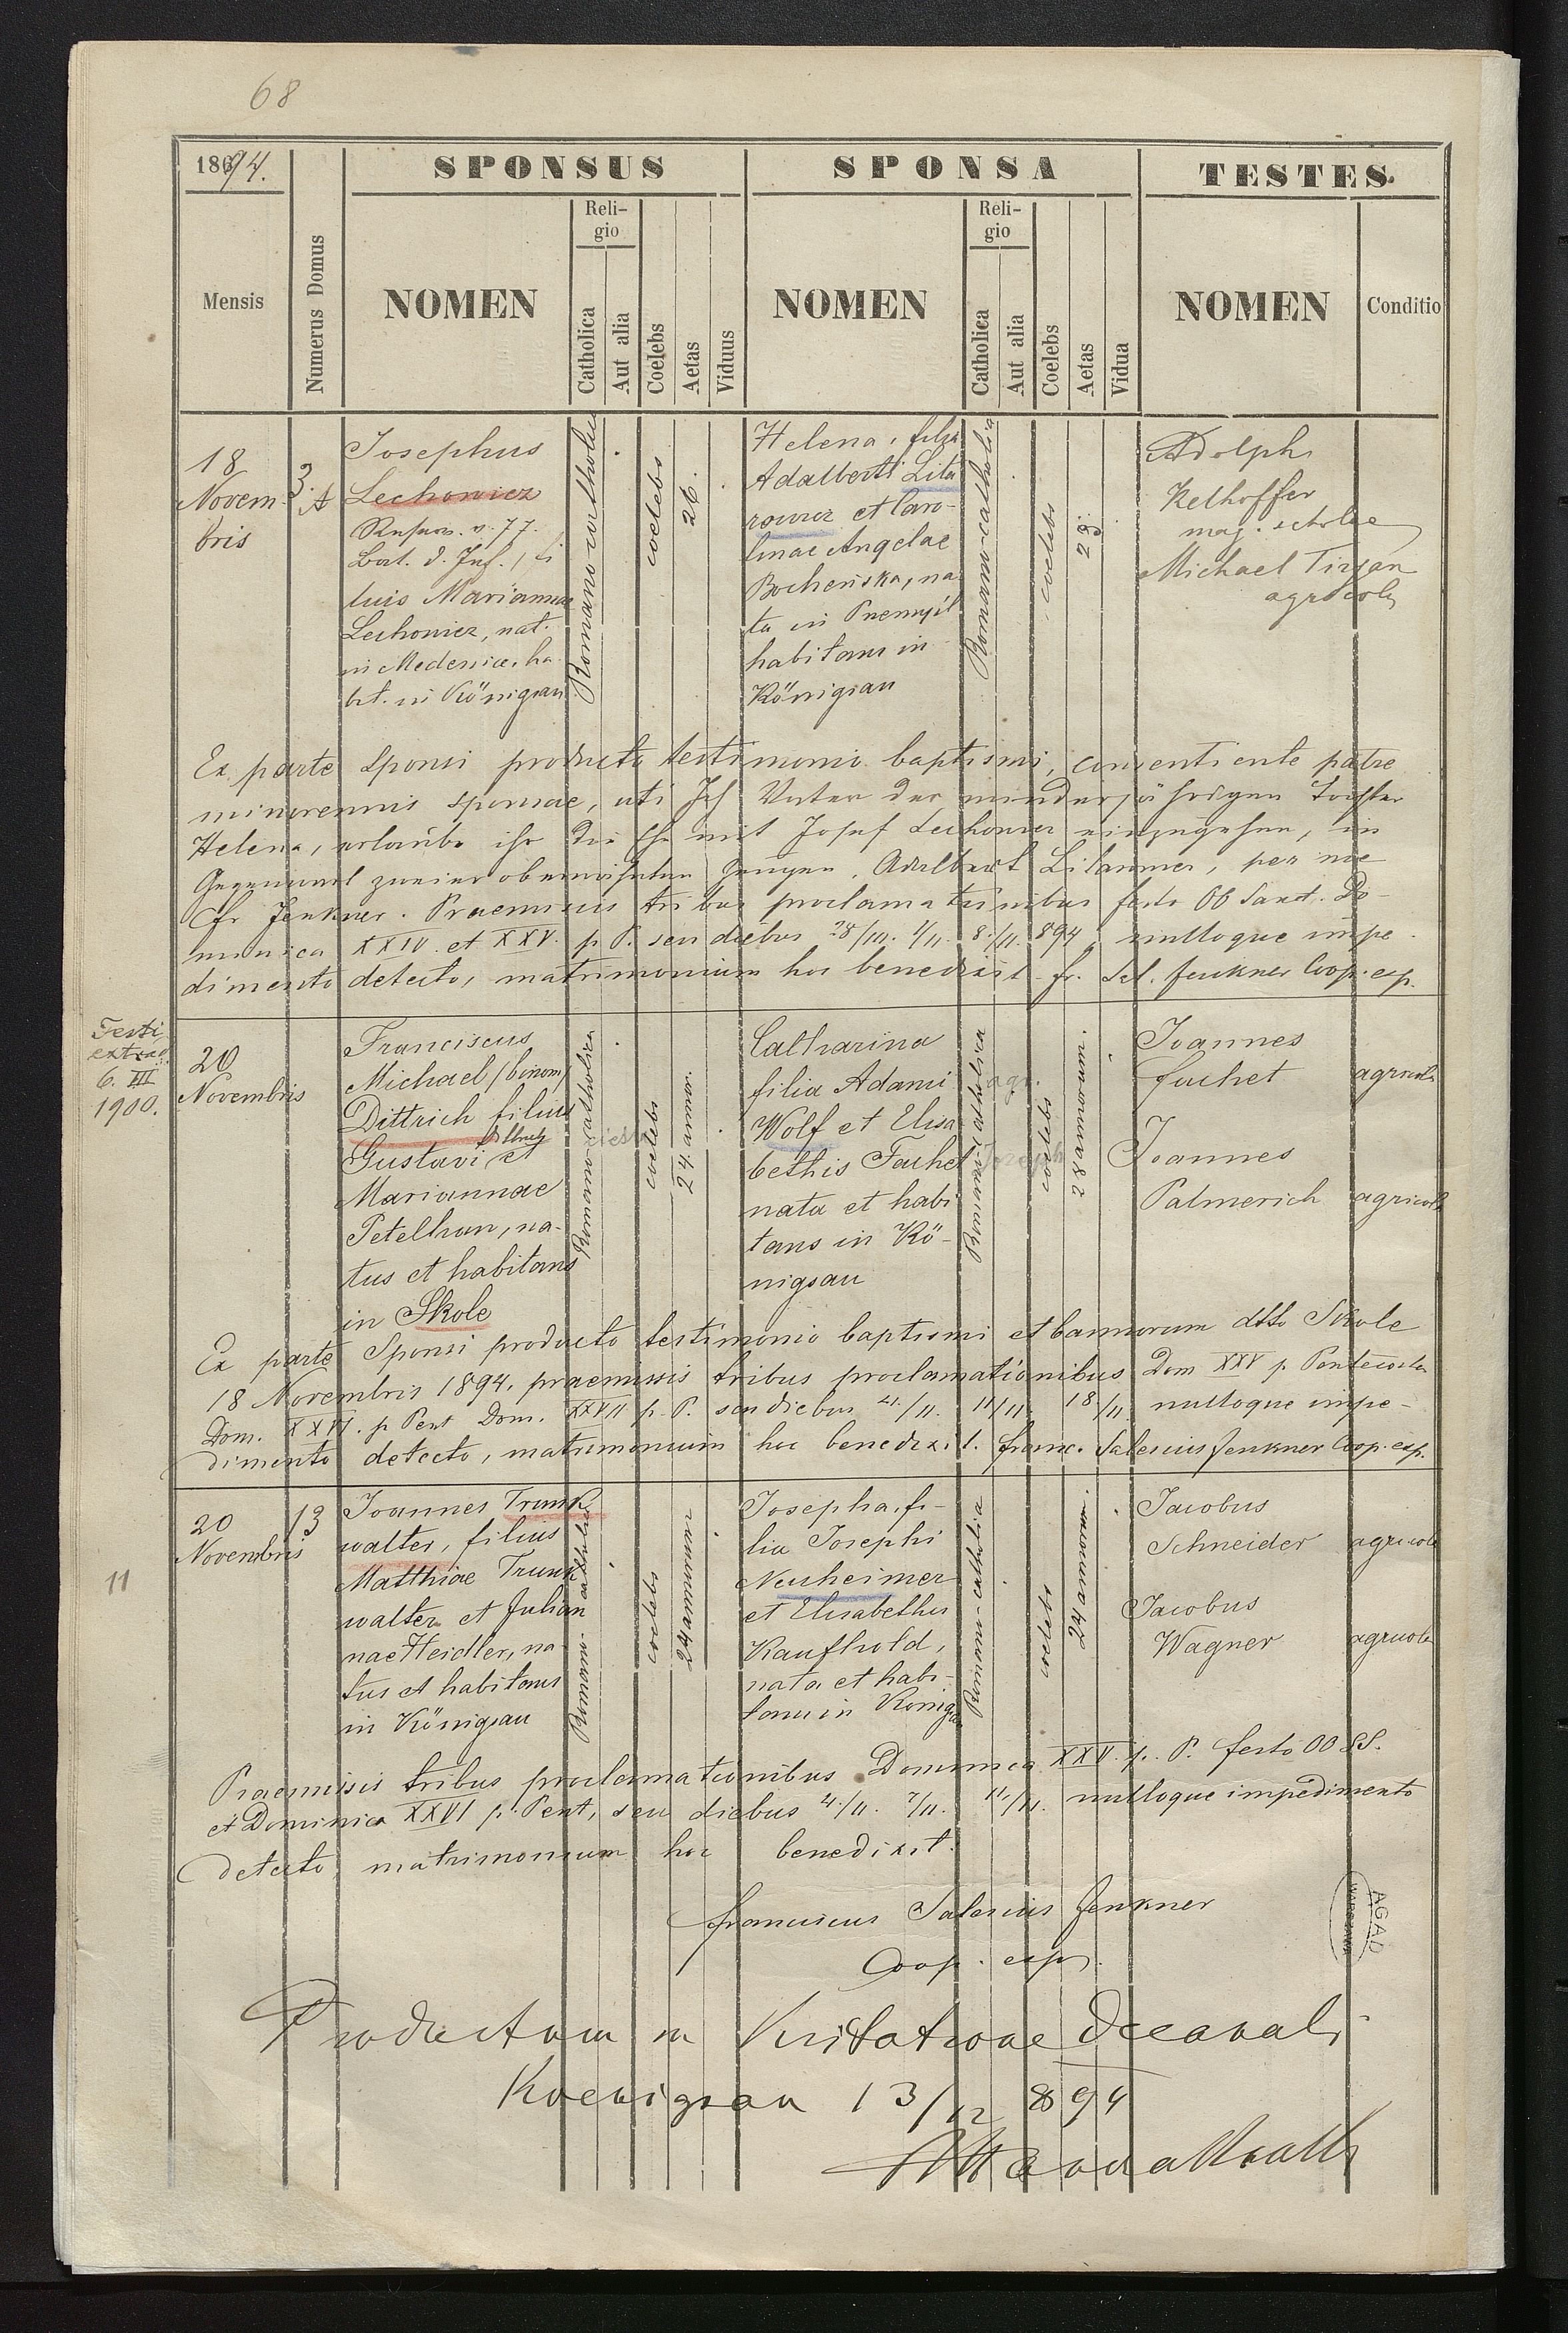 68
1894.
SPONSUS
SPONSA
TESTES.
Mensis
Numerus Domus
NOMEN
Religio
Catholica
Aut alia
Coelebs
Aetas
Viduus
NOMEN
Religio
Catholica
Aut alia
Coelebs
Aetas
Vidua
NOMEN
Conditio
18
Novem
bris
3.
A
Josephus
Lechowicz
n. 77.
Bat. d. Inf., fi
luis Mariannae
Lechowicz, nat.
in Medenice, ha
bit. in Königsau
Romano-catholica
coelebs
26.
Helena, filia
Adalberti Lita
rowicz et Caro-
linae Angelae
Bocheńska, na
ta in Przemyśl
habitans in
Königsau
Romano-catholica
coelebs
23.
Adolph
Kelhoffer
mag. scholae
Michael Tirjan
agricola
Ex parte sponsi producto testimonio baptismi, consentiente patre
minorennis sponsae, uti Ich Vater der minderjährigen Tochter
Helena, erlaube ihr die Ehe mit Josef Lechowicz einzugehen, in
Gegenwart zweier Zeugen. Adalbert, per me
fr Jenkner. Praemissis tribus proclamationibus festo OO Sanct. Do-
minica XXIV. et XXV. p P. seu diebus 28/III. 1/11. 8./11. 894, nulloque impe-
dimento detecto, matrimonium hoc benedixit fr. Sal. Jenkner Coop. exp.
Testi.
extrad.
6. III
1900.
20
Novembris
Franciscus
Michael (binom)
Dittrich filius
Dittrich
Gustavi et
Mariannae
Petelhan, na-
tus et habitans
in Skole
Romano-catholica
coelebs
24. annor.
Catharina
filia Adami agr.
Wolf et Elisa
bethis Fachet Joseph
nata et habi
tans in Kö-
nigsau
Romano-catholica
coelebs
28 annorum.
Joannes
Fachet agricola
Joannes
Palmerich agricola
Ex parte Sponsi producto testimonio baptismi et bannorum dtto Skole
18 Novembris 1894. praemissis tribus proclamationibus Dom XXV p Pentecosten
Dom. XXVI. p Pent Dom. XXVII p. P. seu diebus 4./11. 11/11. 18/11 nulloque impe-
dimento detecto, matrimonium hoc benedixit. Franc. Salesius Jenkner Coop. exp.
11
20
Novembris
13
Joannes Trunk
walter, filius
Matthiae Trunk
walter et Julian
nae Heidler, na
tus et habitans
in Königsau
Romano-catholica
coelebs
24 annorum
Josepha, fi-
lia Josephi
Neuheimer
et Elisabethis
Kaufhold,
nata et habi-
tans in Königsau
Romano-catholica
coelebs
24 annorum.
Jacobus
Schneider agricola
Jacobus
Wagner agricola
Praemissis tribus proclamationibus Dominica XXV. p. P. festo OO SS.
et Dominica XXVI p. Pent, seu diebus 4./11. 7/11. 11/11. nulloque impedimento
detecto, matrimonium hoc benedixit.
Franciscus Salesius Jenkner
Coop. exp.
AGAD
WARSZAWA
Productum in Visitatione Decanali
Koenigsau 13/12 894